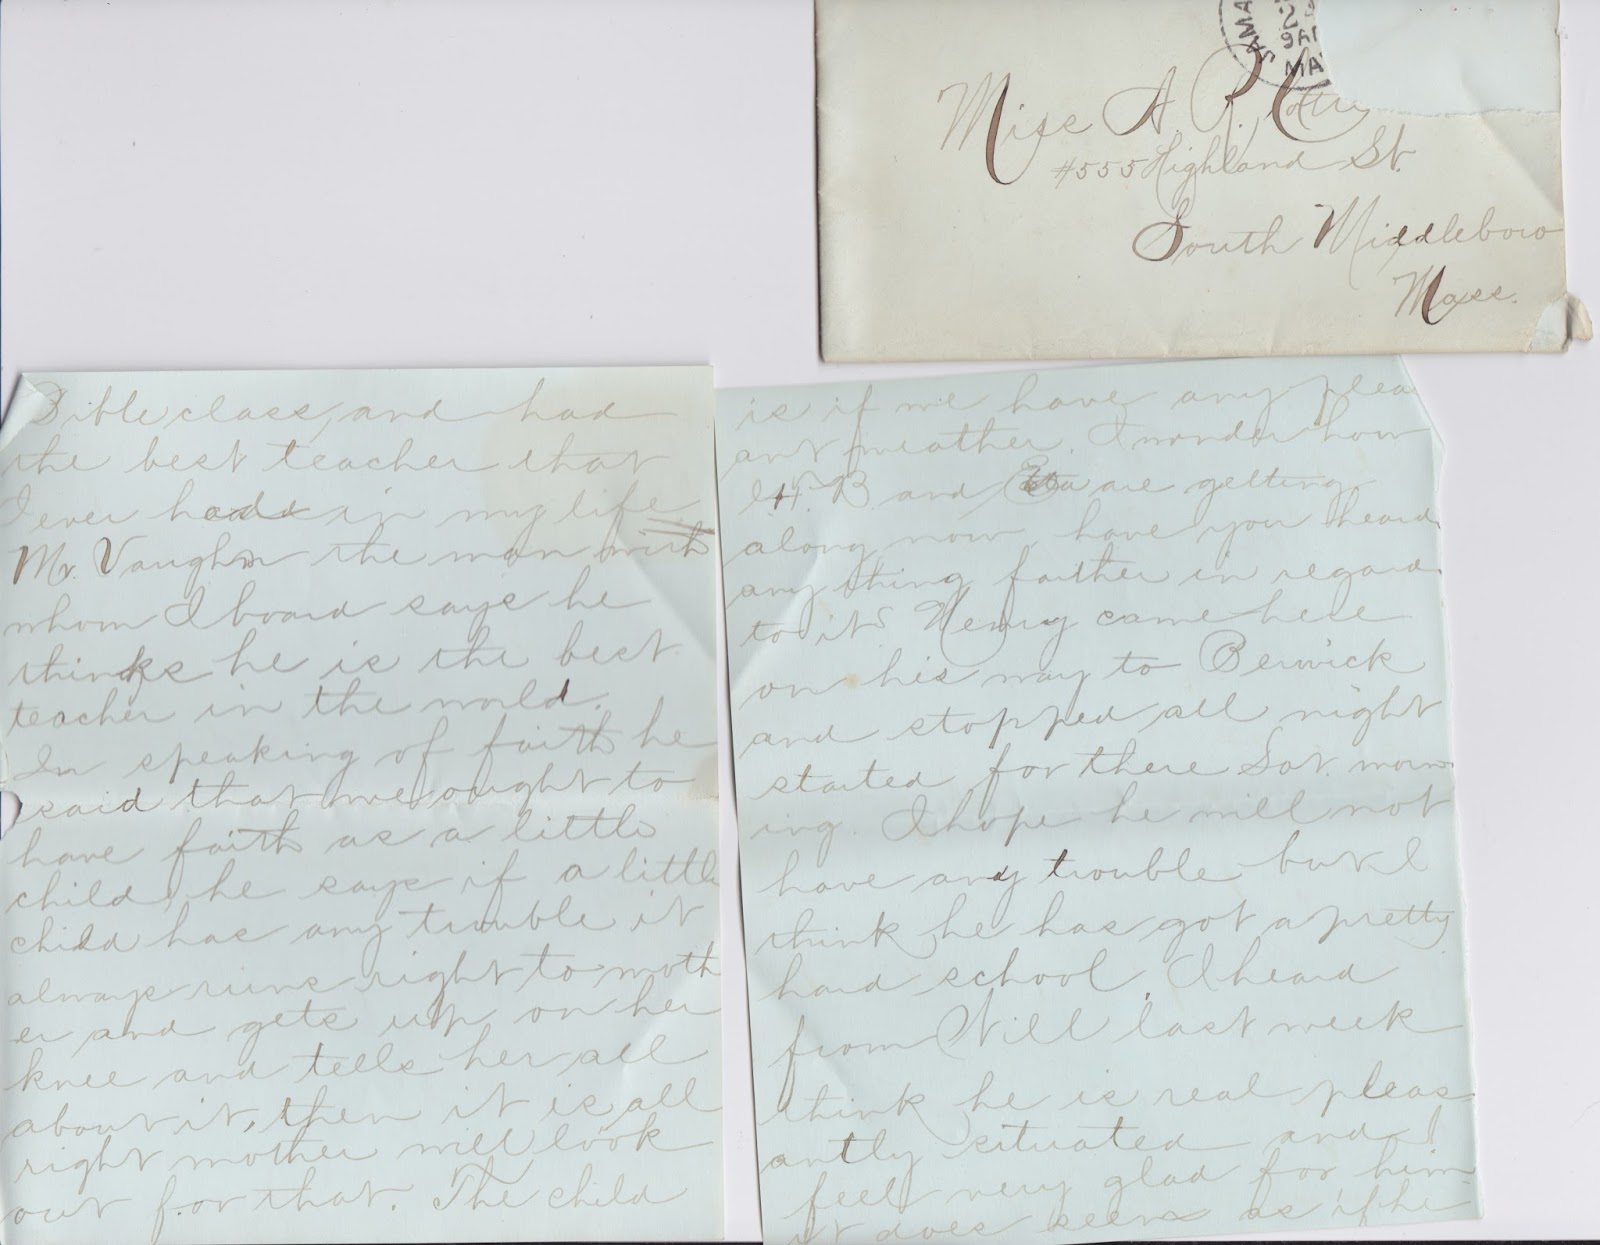 Miss A
#555 Highland St.
South Middleboro
Mass.
Bible class, and had
the best teacher that
I ever had in my life
Mr. Vaughn the man with
whom I board says he
thinks he is the best
teacher in the world.
In speaking of faith he
said that we ought to
have faith as a little
child, he says if a little
child has any trouble it
always runs right to moth
er and gets up on her
knee and tells her all
about it, then it is all
right mother will look
out for that. The child
is if we have any pleas
ant weather. I wonder how
H. B. and Etta are getting
along now, have you heard
any thing farther in regard
to it? Henry came here
on his way to Berwick
and stopped all night
started for there Sat. morn
ing. I hope he will not
have any trouble but I
think he has got a pretty
hard school. I heard
from Will last week
think he is real pleas
antly situated and I
feel very glad for him
it does seem as if he